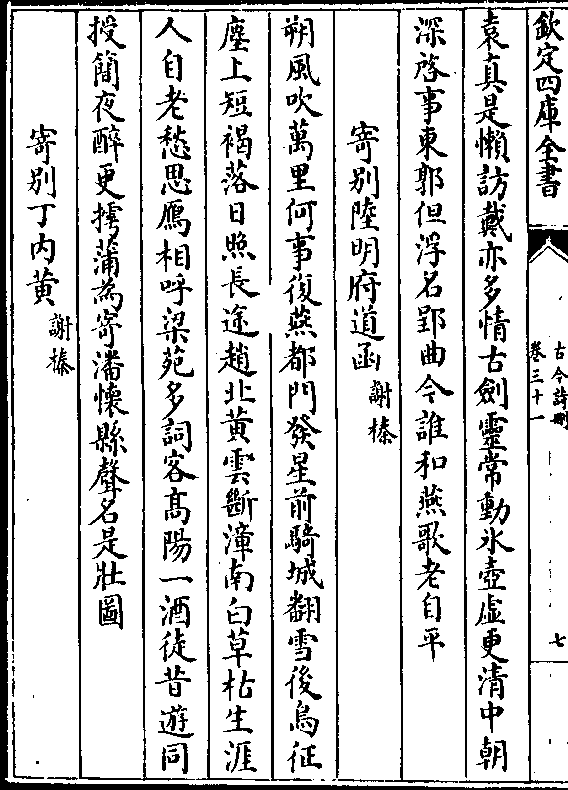 欽定四庫全書
古今詩刪
卷三十一
七
袁真是懶訪戴亦多情古劍靈常動氷壺虛更清中朝
深啓事東郭但浮名郢曲今誰和燕歌老自平
寄別陸明府道函 謝榛
朔風吹萬里何事復燕都門發星前騎城翻雪後烏征
塵上短褐落日照長途趙北黃雲斷漳南白草枯生涯
人自老愁思鴈相呼梁苑多詞客髙陽一酒徒昔遊同
授簡夜醉更摴蒲為寄潘懷縣聲名是壯圖
寄別丁内黃 謝榛